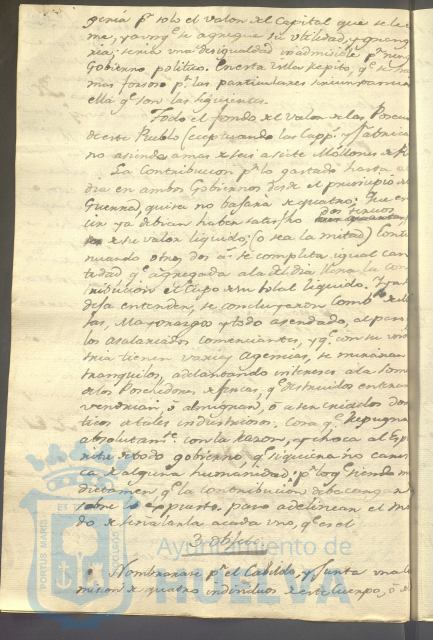 genia pr. solo el valor del Capital que se le
me, y aunqe. se agregue su utilidad, y
ria; seria una desigualdad inadmisible pr. ning
Gobierno politico. En esta vista repito, qe. se ha
mas forsoso pr. las particulares
ella qe. son las siguientes.
Todo el fondo del valor de las
de este Pueblo (exceptuando las Capps. y Fabricas
no asiende a mas de seis a siete Millones de Rs
La Contribucion pr. lo gastado hasta el
dia en ambos Gobiernos desde el principio de
Guerra, quise no bajará de quatro; Que en
ya debian haber satisfho dos tercios
de su valor liquido; (o sea la mitad) Conti
nuando otros dos as. se completa igual can
tidad qe. agregada a la del dia llena la con
tribucion el Cupo de su total liquido. Y
desa entender, se concluyeron
tas, Mayorazgos y todo asendado, al paso
los asalariados comerciantes, y qe. con su indus
tria tienen varias Agencias, se mirarian
tranquilos, adelantando intereses a la som
de los Poseedores de fincas, qe. destruidos enteram
vendrian, ó a ser criados domes
ticos de tales industriosos. Cosa qe. repugna
absolutamte. con la razon, y choca al Espi
ritu de todo gobierno qe. siquiera no cares
ca de alguna humanidad: pr. lo qe. siendo mi
dictamen, qe. la contribucion deba cargar
sobre lo expuesto. paso a delinear el mo
do de señalarla a cada uno, qe. es el
3. objeto
Nombraràse pr. el Cabildo, y Junta una Co
mision de quatro individuos de este cuerpo, ó de
Ayuntamiento de
HUELVA
PORTUS MARIS ET